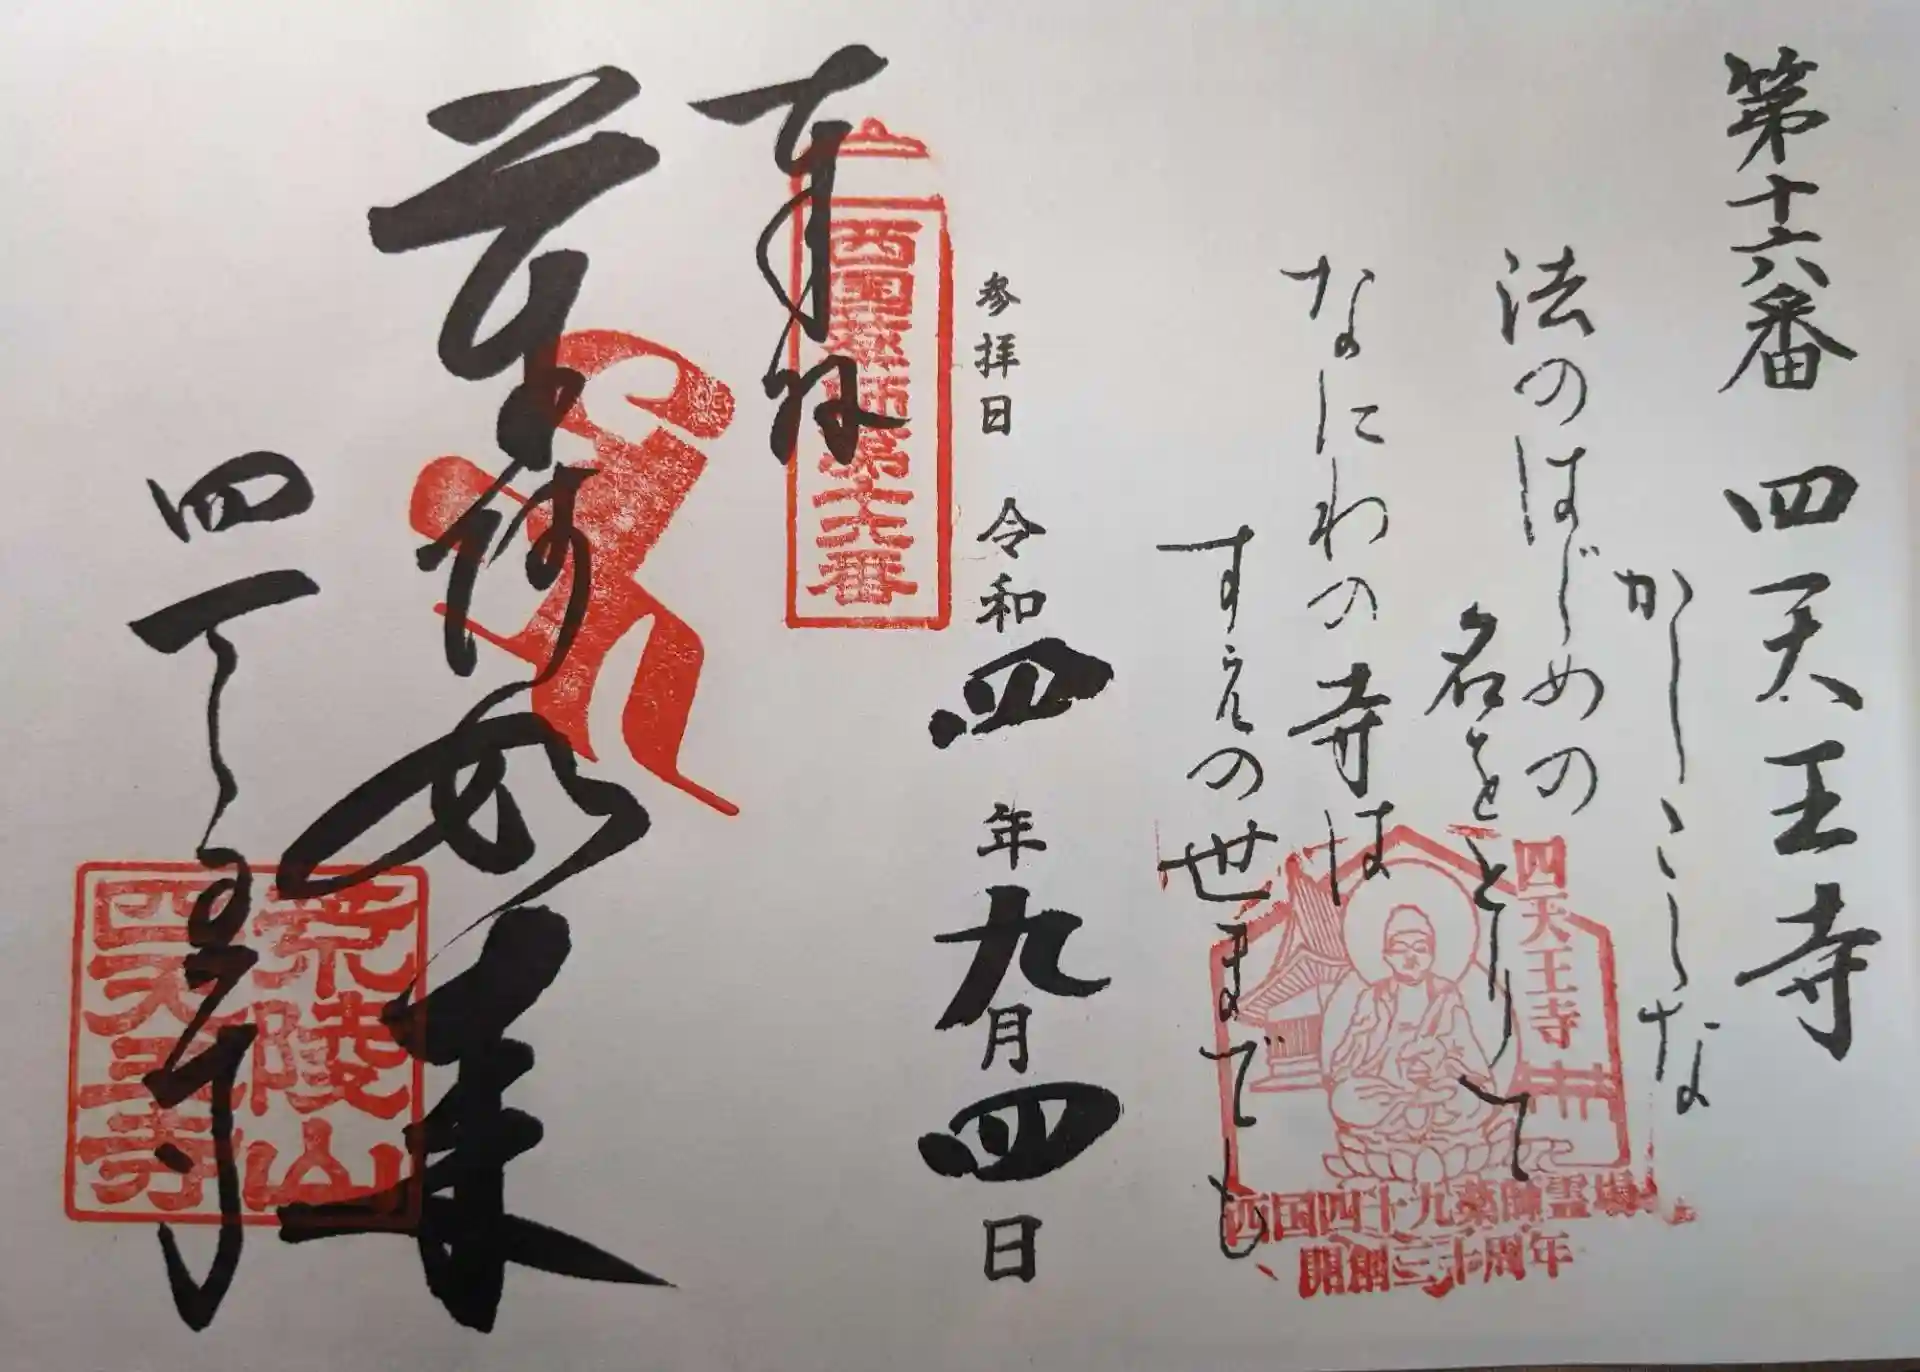 第十六番 四天王寺
かしこしな
法のはじめの
名をとりて
なにわの寺は
すえの世までも
四天王寺
西国四十九薬師霊場
開創三十周年
参拝日 令和四年九月四日
奉拝
西国薬師第十六番
薬師如来
四天王寺
荒陵山
四天王寺